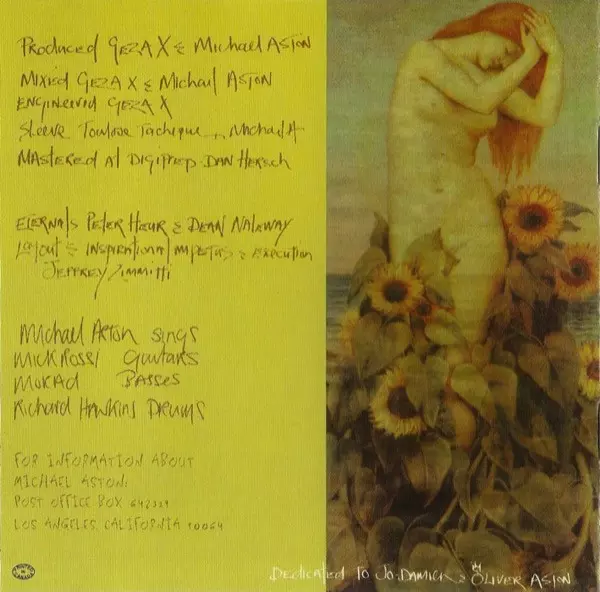 Produced Geza X & Michael Aston
Mixed Geza X & Michael Aston
Engineered Geza X
Sleeve Toulose Tachique Michael A
Mastered at Digiprep Dan Hersch
Eternals Peter Heur & Dean Naleway
Layout & inspirational impetus & execution
Jeffrey Zimmitti
Michael Aston sings
Mick Rossi Guitars
Mokad Basses
Richard Hawkins Drums
FOR INFORMATION ABOUT
MICHAEL ASTON:
POST OFFICE BOX
LOS ANGELES CALIFORNIA 90064
PRINTED IN CANADA
Dedicated to Jo. Damick & Oliver Aston